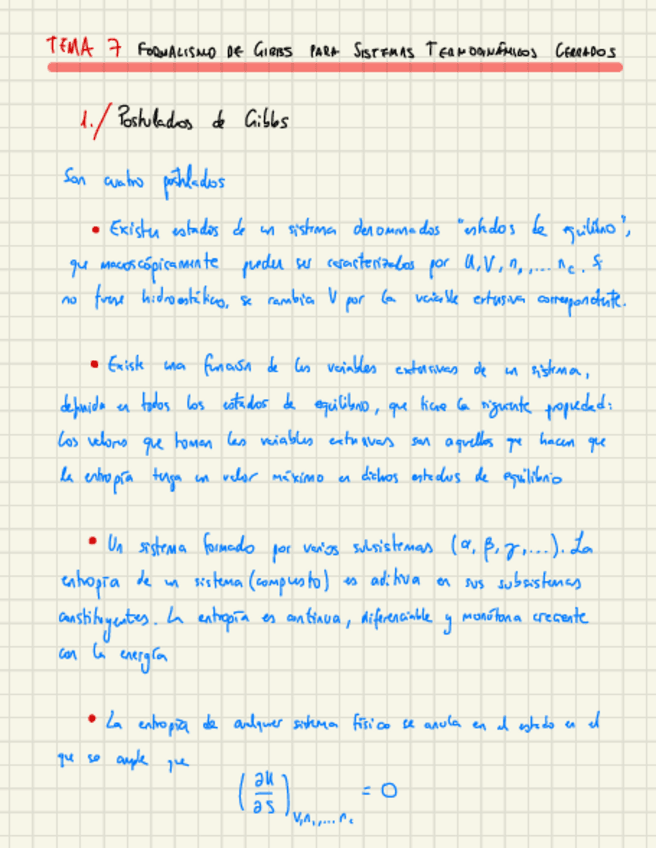 TEMA 7 FORMALISMO DE GIBBS PARA SISTEMAS TERMODINÁMICOS CERRADOS
1./ Postulados de Gibbs
Son cuatro postulados
• Existen estados de un sistema denominados "estados de equilibrio",
que macroscópicamente pueden ser caracterizados por U, V, n₁, ... n_c. Si
no fuese hidrostático, se cambia V por la variable extensiva correspondiente.
• Existe una función de las variables extensivas de un sistema,
definida en todos los estados de equilibrio, que tiene la siguiente propiedad:
Los valores que toman las variables extensivas son aquellos que hacen que
la entropía tenga un valor máximo en dichos estados de equilibrio
• Un sistema formado por varios subsistemas (α, β, γ, ...). La
entropía de un sistema (compuesto) es aditiva en sus subsistemas
constituyentes. La entropía es continua, diferenciable y monótona creciente
con la energía
• La entropía de cualquier sistema físico se anula en el estado en el
que se cumple que
(∂U/∂S)_{V, n₁, ... n_c} = 0